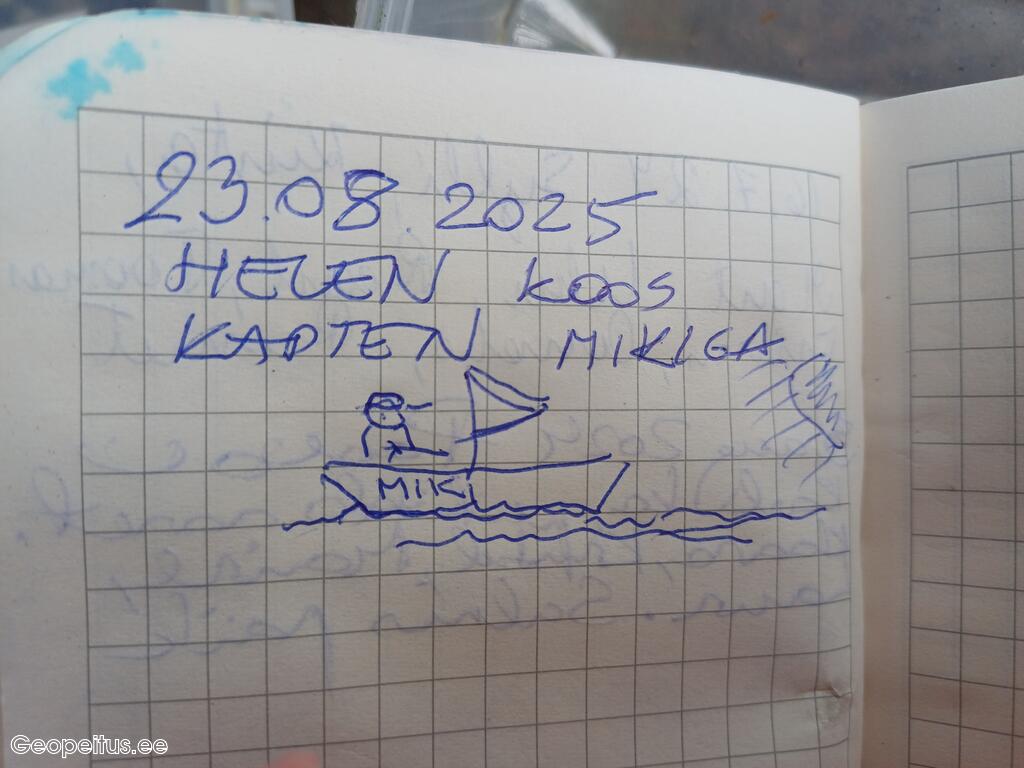 23.08.2025
HELEN KOOS
KAPTEN MIKIGA
MIKI
Geopeitus.ee